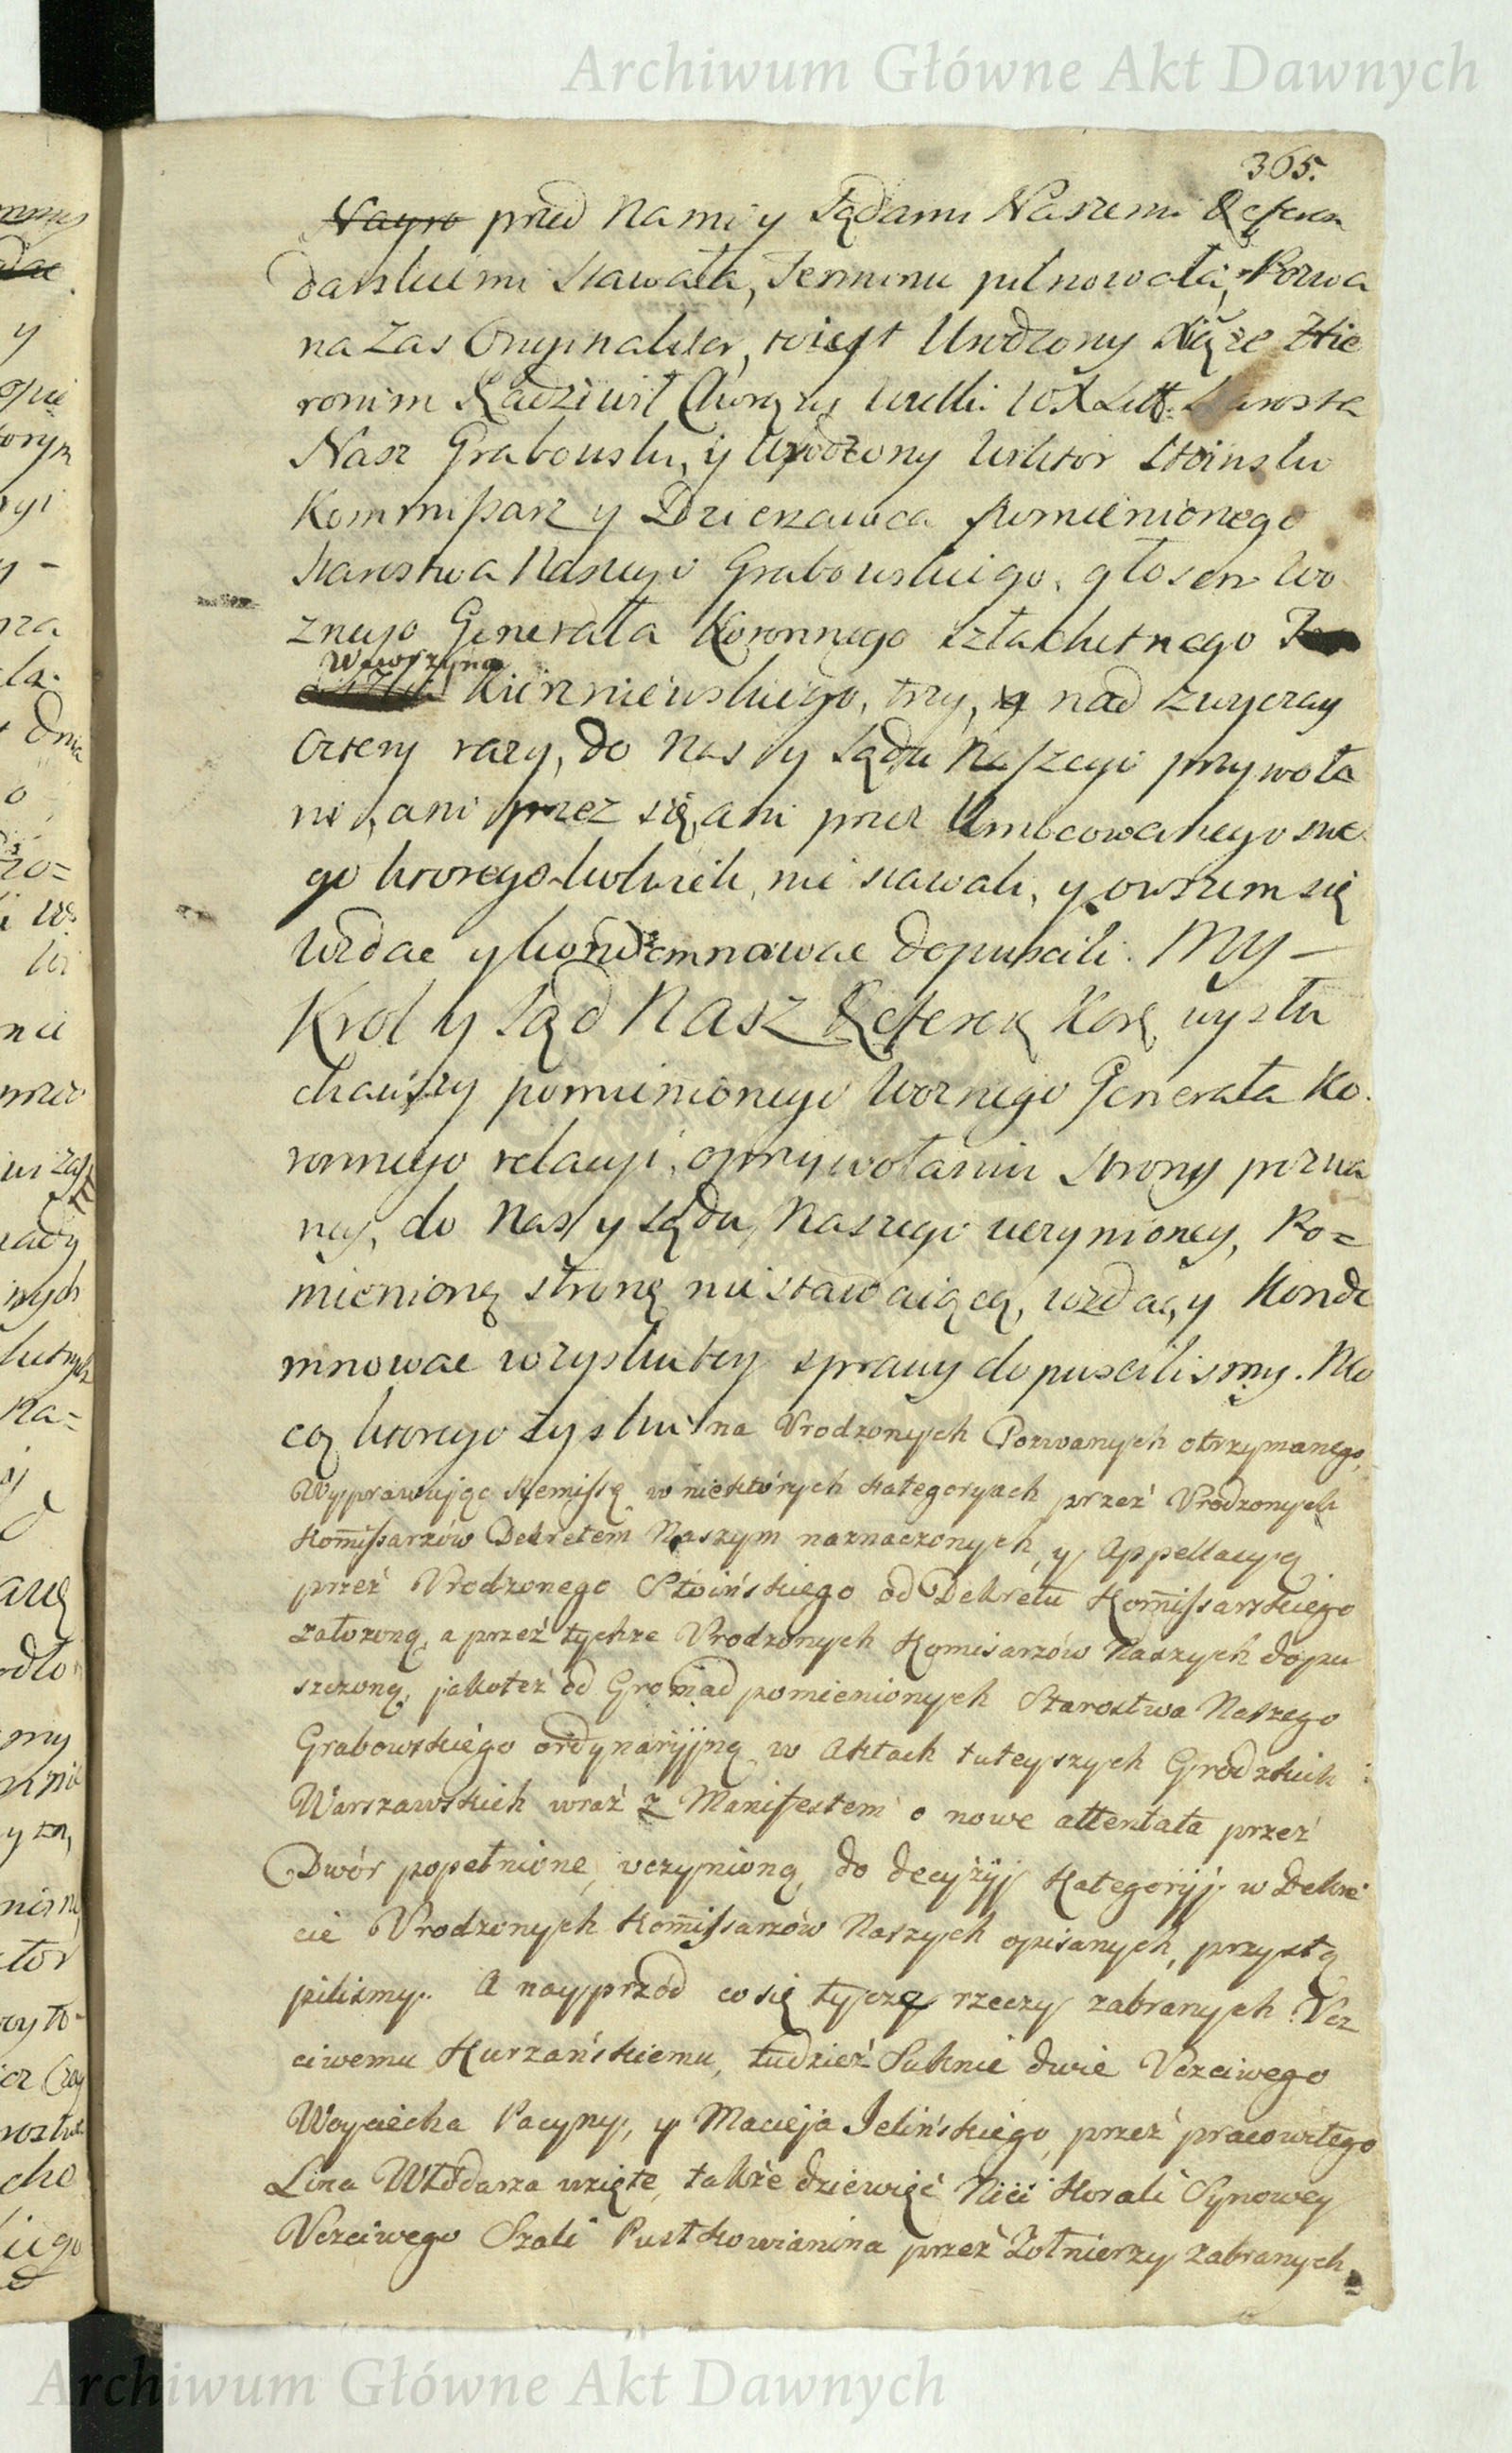 Archiwum Główne Akt Dawnych
365.
Nayro przed Nami y Sądami Naszemi Referen
darskiemi stawała, Terminu pilnowała, Pozwa
na zas Oryginaliter, to iest Urodzony Xiąże Hie
ronim Radziwił Chorąży Wielki WXLitt. Starosta
Nasz Grabowski, y Urodzony Wiktor Stoinski
Kommissarz y Dzierzawca pomienionego
Starostwa Naszego Grabowskiego, głosem Wo
znego Generała Koronnego szlachetnego
Wawrzyna
Kierzniewskiego, trzy, y nad zwyczay
cztery razy, do Nas y Sądu Naszego przywoła
ni, ani przez się, ani przez Umocowanego swe
go ktorego kolwiek, nie stawali, y owszem się
wzdac y kondemnowac dopuscili. My
Krol y Sąd Nasz Referen Kor, wysłu
chawszy pomienionego Woznego Generała Ko
ronnego relacyi, o przywołaniu strony pozwa
ney, do Nas y Sądu Naszego uczynioney, Po=
mienioną stronę nie stawaiącą, wzdac, y Konde
mnowac w zysku tey sprawy dopuscilismy. Mo
cą ktorego zysku na Vrodzonych Pozwanych otrzymanego,
Wyprawując Remissę w niektórych kategoryach przez Vrodzonych
Kommissarzów Dekretem Naszym naznaczonych, y Appellacyą
przez Vrodzonego Stoińskiego od Dekretu Kommissarskiego
założoną, a przez tychze Vrodzonych Komisarzów Naszych dopu
szczoną, jakoteż od Gromad pomienionych Starostwa Naszego
Grabowskiego ordynaryjną w Aktach tuteyszych Grodzkich
Warszawskich wraz z Manifestem o nowe attentata przez
Dwór popełnione, uczynioną, do decyzyj Kategoryj w Dekre
cie Vrodzonych Kommissarzów Naszych opisanych, przystą
pilismy. A nayprzód co się tycze rzeczy zabranych Vcz
ciwemu Kurzańskiemu, tudzież Suknie dwie Vczciwego
Woyciecha Pacyny, y Macieja Jelińskiego, przez pracowitego
Lira Włodarza wzięte, także dziewięć Nici Korali Synowey
Vczciwego Szali Pustkowianina przez Żołnierzy zabranych
Archiwum Główne Akt Dawnych